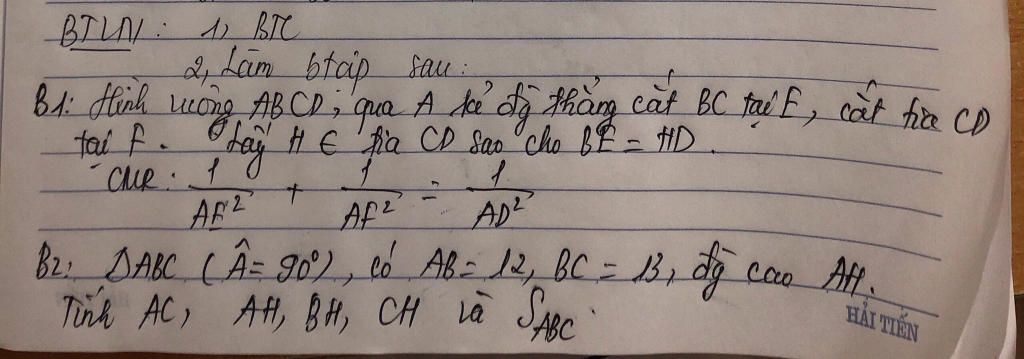 BTVN: 1, BTC
2, Làm btáp sau:
B1: Hình vuông ABCD; qua A kẻ đg̀ thẳng cắt BC tại E, cắt tia CD
tại F. Lấy H ∈ tia CD sao cho BE = HD.
CMR: 1/AE² + 1/AF² = 1/AD²
B2: ΔABC (Â = 90°), có AB = 12, BC = 13, đg̀ cao AH.
Tính AC, AH, BH, CH và S_ABC.
HẢI TIẾN